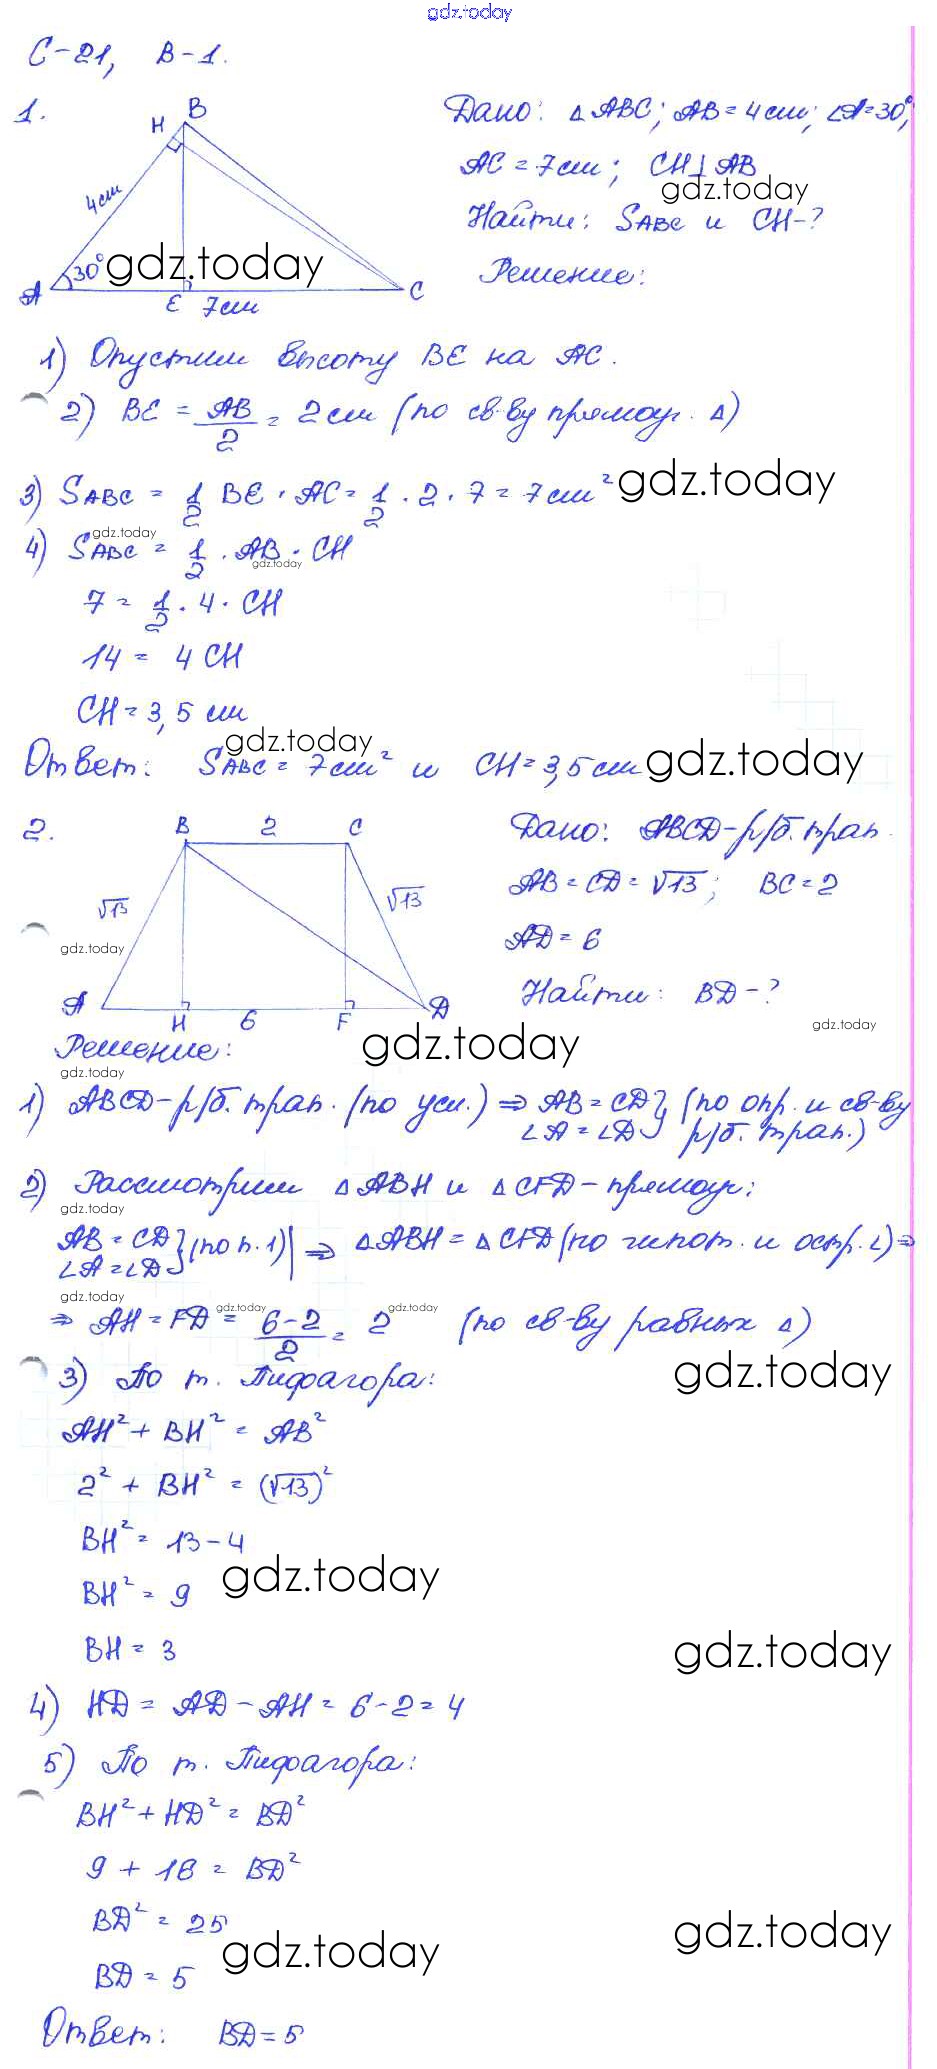 gdz.today
С-21, В-1.
1.
Дано: △ABC; AB = 4 см; ∠A = 30°;
AC = 7 см; CH ⊥ AB
gdz.today
Найти: S_ABC и CH - ?
Решение:
H B
4 см
30°
gdz.today
A E C
7 см
1) Опустим высоту BE на AC.
2) BE = AB/2 = 2 см (по св-ву прямоуг. △)
3) S_ABC = 1/2 BE · AC = 1/2 · 2 · 7 = 7 см²
gdz.today
gdz.today
4) S_ABC = 1/2 · AB · CH
gdz.today
7 = 1/2 · 4 · CH
14 = 4 CH
CH = 3,5 см
gdz.today
Ответ: S_ABC = 7 см² и CH = 3,5 см
gdz.today
2.
B 2 C
√13 √13
gdz.today
A H 6 F D
Дано: ABCD - р/б. трап.
AB = CD = √13; BC = 2
AD = 6
Найти: BD - ?
gdz.today
Решение:
gdz.today
gdz.today
1) ABCD - р/б. трап. (по усл.) ⇒ AB = CD } (по опр. и св-ву
∠A = ∠D } р/б. трап.)
2) Рассмотрим △ABH и △CFD - прямоуг.:
gdz.today
AB = CD } (по п. 1) | ⇒ △ABH = △CFD (по гипот. и остр. ∠) ⇒
∠A = ∠D }
gdz.today
gdz.today
gdz.today
⇒ AH = FD = 6-2/2 = 2 (по св-ву равных △)
gdz.today
3) По т. Пифагора:
AH² + BH² = AB²
2² + BH² = (√13)²
BH² = 13 - 4
gdz.today
BH² = 9
BH = 3
gdz.today
4) HD = AD - AH = 6 - 2 = 4
5) По т. Пифагора:
BH² + HD² = BD²
9 + 16 = BD²
BD² = 25
gdz.today
gdz.today
BD = 5
Ответ: BD = 5